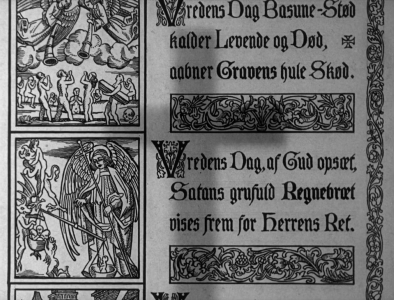 Vredens Dag Basune-Stød
kalder Levende og Død,
aabner Gravens hule Skød.
Vredens Dag, af Gud opsæt,
Satans grufuld Regnebræt
vises frem for Herrens Ret.